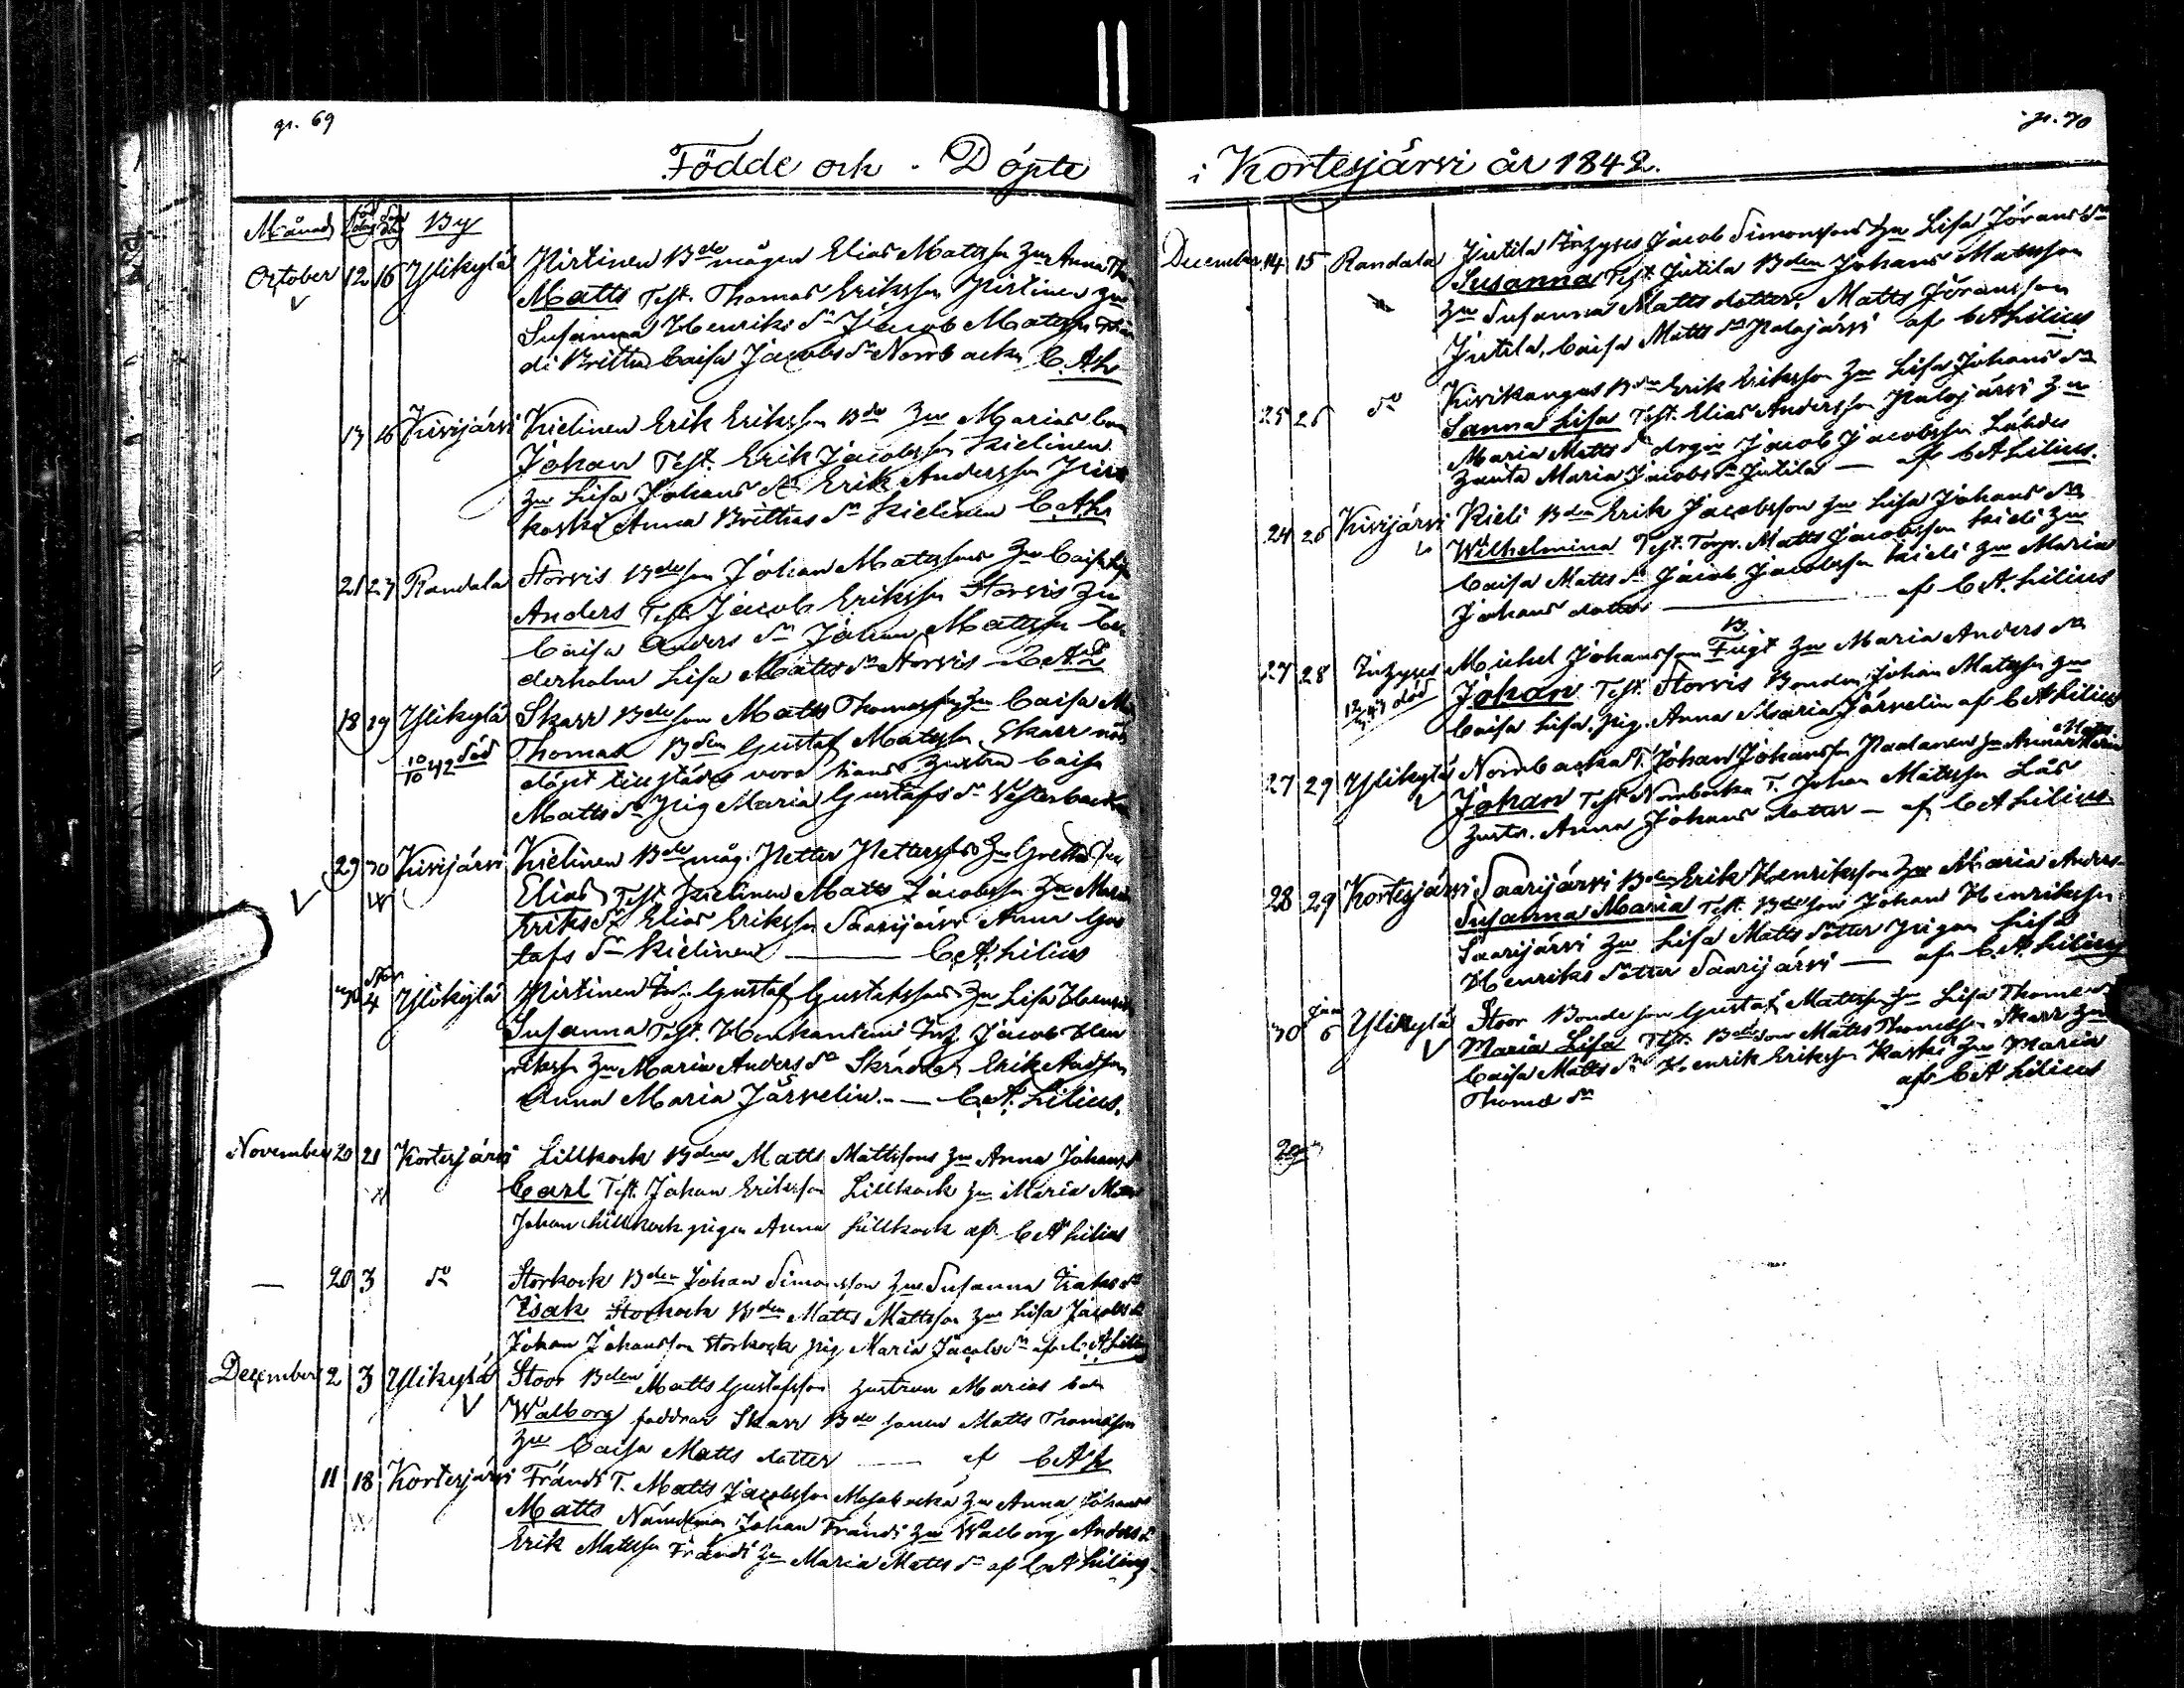 gr. 69
Födde och Döpte
Månad Född dag Döpt dag By
October 12 16 Ylikylä Pirtinen Bde mågen Elias Mattss: Hu Anna
Matts Test. Thomas Eriksson Pirtinen Hu
Susanna Henriks dr Jacob Matsson
Brita Caisa Jacobs dr Norrbacka C.A.L.
13 16 Kivijärvi Kielinen Erik Eriksson Bde Hu Maria
Johan Test. Erik Jacobsson Kielinen
Hu Lisa Johans dr Erik Andersson
koski Anna Brita dr Kielinen C.A.L.
21 23 Randala Storvis Bde son Johan Matssons Hu Caisa
Anders Test. Jacob Eriksson Storvis Hu
Caisa Anders dr Johan Matsson
derholm Lisa Matts dr Storvis C.A.L.
18 19 Ylikylä Skarr Bde son Matts Thomasson Hu Caisa
10/10 42 död Thomas Bden Gustaf Matsson Skarr
döpt tillstädes voro hans hustru Caisa
Matts dr Pig Maria Gustafs dr Westerbacka
29 30 Kivijärvi Kielinen Bde måg. Petter Petterssons Hu Greta
Elias Test. Kielinen Matts Jacobsson Hu Maria
Eriks dr Elias Eriksson Saarijärvi Anna Gus
tafs dr Kielinen C.A. Lilius
30 4 Ylikylä Pirtinen Inh. Gustaf Gustafssons Hu Lisa Henriks
Susanna Test. Honkaniemi Inh. Jacob Hen
riksson Hu Maria Anders dr Skräddar Erik
Anna Maria Järvelin C.A. Lilius.
November 20 21 Kortesjärvi Lillkock Bden Matts Mattssons Hu Anna Johans
Carl Test. Johan Eriksson Lillkock Hu Maria Matts
Johan Lillkock pigan Anna Lillkock af C A Lilius
20 3 do Storkock Bden Johan Simonsson Hu Susanna Isaks dr
Isak Storkock Bden Matts Mattsson Hu Lisa Jacobs dr
Johan Johansson Storkock pig Maria Jacobs dr af C. A Lilius
December 2 3 Ylikylä Stoor Bden Matts Gustafsson hustrun Maria
Walborg faddrar Skarr Bde sonen Matts Thomasson
Hu Caisa Matts dotter af C A L
11 18 Kortesjärvi Frändi T. Matts Jacobsson Mosabacka Hu Anna Johans
Matts Nämdeman Johan Frändi Hu Walborg Anders dr
Erik Matsson Frändi Hu Maria Matts dr af C A Lilius
gr. 70
i Kortesjärvi år 1842.
December 14 15 Randala Jutila Inhyses Jacob Simonsons Hu Lisa Jörans dr
Susanna Test. Jutila Bden Johans Matsson
Hu Susanna Matts dotter, Matts Jöransson
Jutila, Caisa Matts dr Palojärvi af C A Lilius
25 26 do Kivikangas Bden Erik Eriksson Hu Lisa Johans dr
Sanna Lisa Test. Elias Andersson Palojärvi Hu
Maria Matts dr drgn Jacob Jacobsson Lähdes
Maria Jacobs dr Jutila af C A Lilius.
24 26 Kivijärvi Kieli Bden Erik Jacobsson Hu Lisa Johans dr
Wilhelmina Test. Torp. Matts Jacobsson Kieli Hu
Caisa Matts dr Jacob Jacobsson Kieli Hu Maria
Johans dotter af C A. Lilius
27 28 Inhyses Michel Johansson Hu Maria Anders dr
12/1 43 död Johan Test. Storvis Bonden Johan Matsson Hu
Caisa Lisa. Pig. Anna Maria Järvelin af C A Lilius
27 29 Ylikylä Norrbacka T. Johan Johansson Paalanen Hu Anna Maria Matts
Johan Test. Norrbacka T. Johan Matsson Lås
hustr. Anna Johans dotter af C A Lilius
28 29 Kortesjärvi Saarijärvi Bden Erik Henriksson Hu Maria Anders
Susanna Maria Test. Bde son Johan Henriksson
Saarijärvi Hu Lisa Matts dotter Pigan Lisa
Henriks dotter Saarijärvi af C. A. Lilius
30 Jan 6 Ylikylä Stoor Bonde son Gustaf Mattsson Hu Lisa Thomæ dr
Maria Lisa Test. Bde son Matts Thomasson Skarr Hu
Caisa Matts dr Henrik Eriksson Kaski Hu Maria
Thomæ dr af C A Lilius